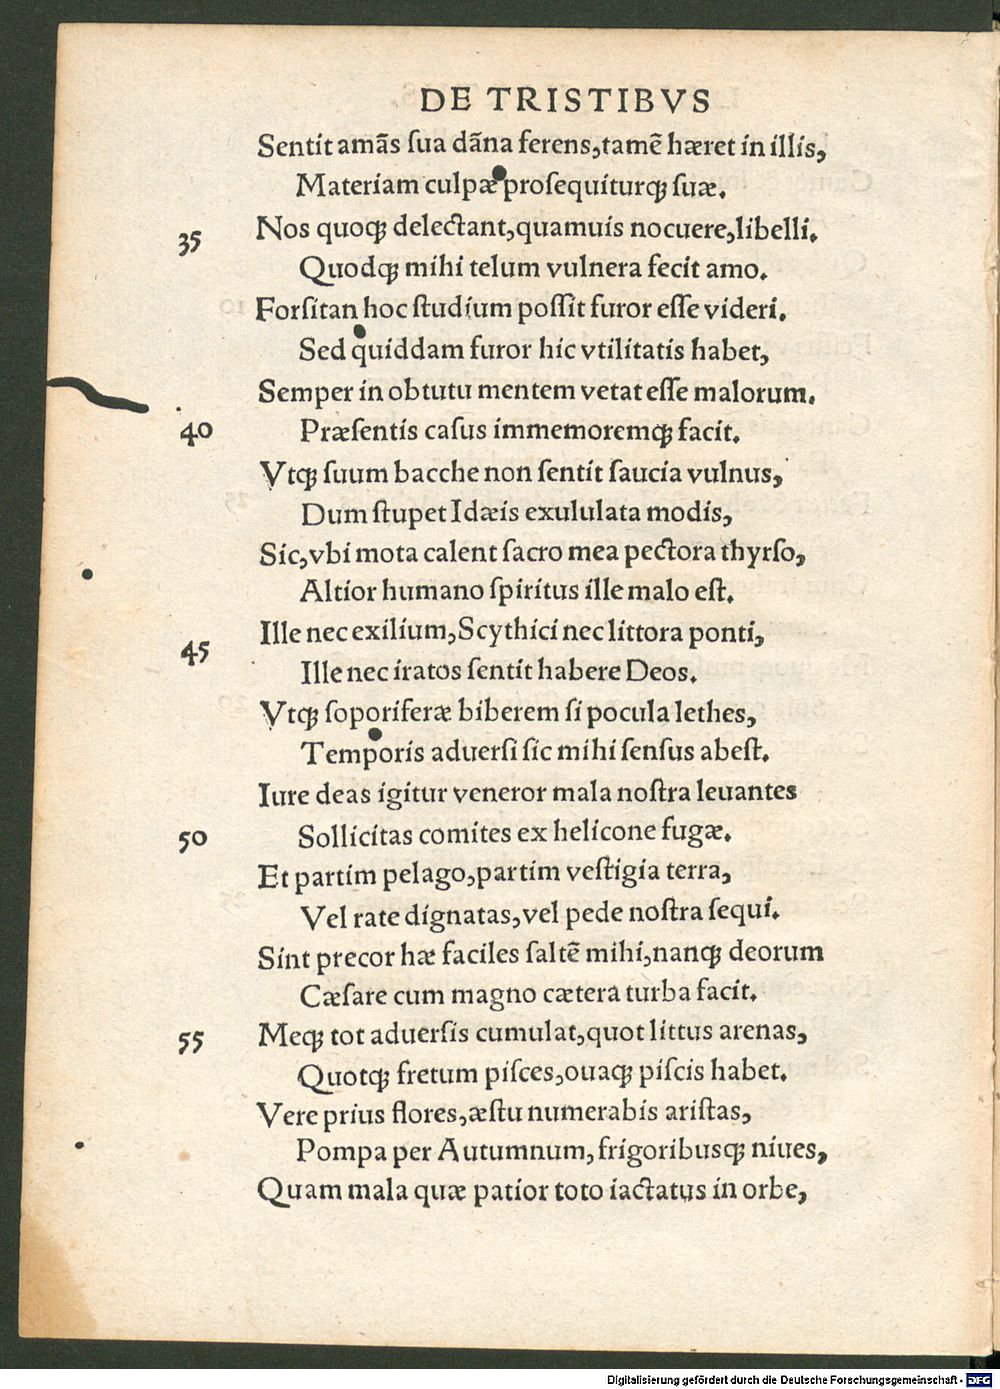 DE TRISTIBVS
Sentit amãs ſua dãna ferens, tamẽ hæret in illis,
Materiam culpæ proſequiturqꝫ ſuæ.
35 Nos quoqꝫ delectant, quamuis nocuere, libelli.
Quodqꝫ mihi telum vulnera fecit amo.
Forſitan hoc ſtudium poſſit furor eſſe videri.
Sed quiddam furor hic vtilitatis habet,
Semper in obtutu mentem vetat eſſe malorum.
40 Præſentis caſus immemoremqꝫ facit.
Vtqꝫ ſuum bacche non ſentit ſaucia vulnus,
Dum ſtupet Idæis exululata modis,
Sic, vbi mota calent ſacro mea pectora thyrſo,
Altior humano ſpiritus ille malo eſt.
45 Ille nec exilium, Scythici nec littora ponti,
Ille nec iratos ſentit habere Deos.
Vtqꝫ ſoporiferæ biberem ſi pocula lethes,
Temporis aduerſi ſic mihi ſenſus abeſt.
Iure deas igitur veneror mala noſtra leuantes
50 Sollicitas comites ex helicone fugæ.
Et partim pelago, partim veſtigia terra,
Vel rate dignatas, vel pede noſtra ſequi.
Sint precor hæ faciles ſaltẽ mihi, nanqꝫ deorum
Cæſare cum magno cætera turba facit.
55 Meqꝫ tot aduerſis cumulat, quot littus arenas,
Quotqꝫ fretum piſces, ouaqꝫ piſcis habet.
Vere prius flores, æſtu numerabis ariſtas,
Pompa per Autumnum, frigoribusqꝫ niues,
Quam mala quæ patior toto iactatus in orbe,
Digitalisierung gefördert durch die Deutsche Forschungsgemeinschaft - DFG